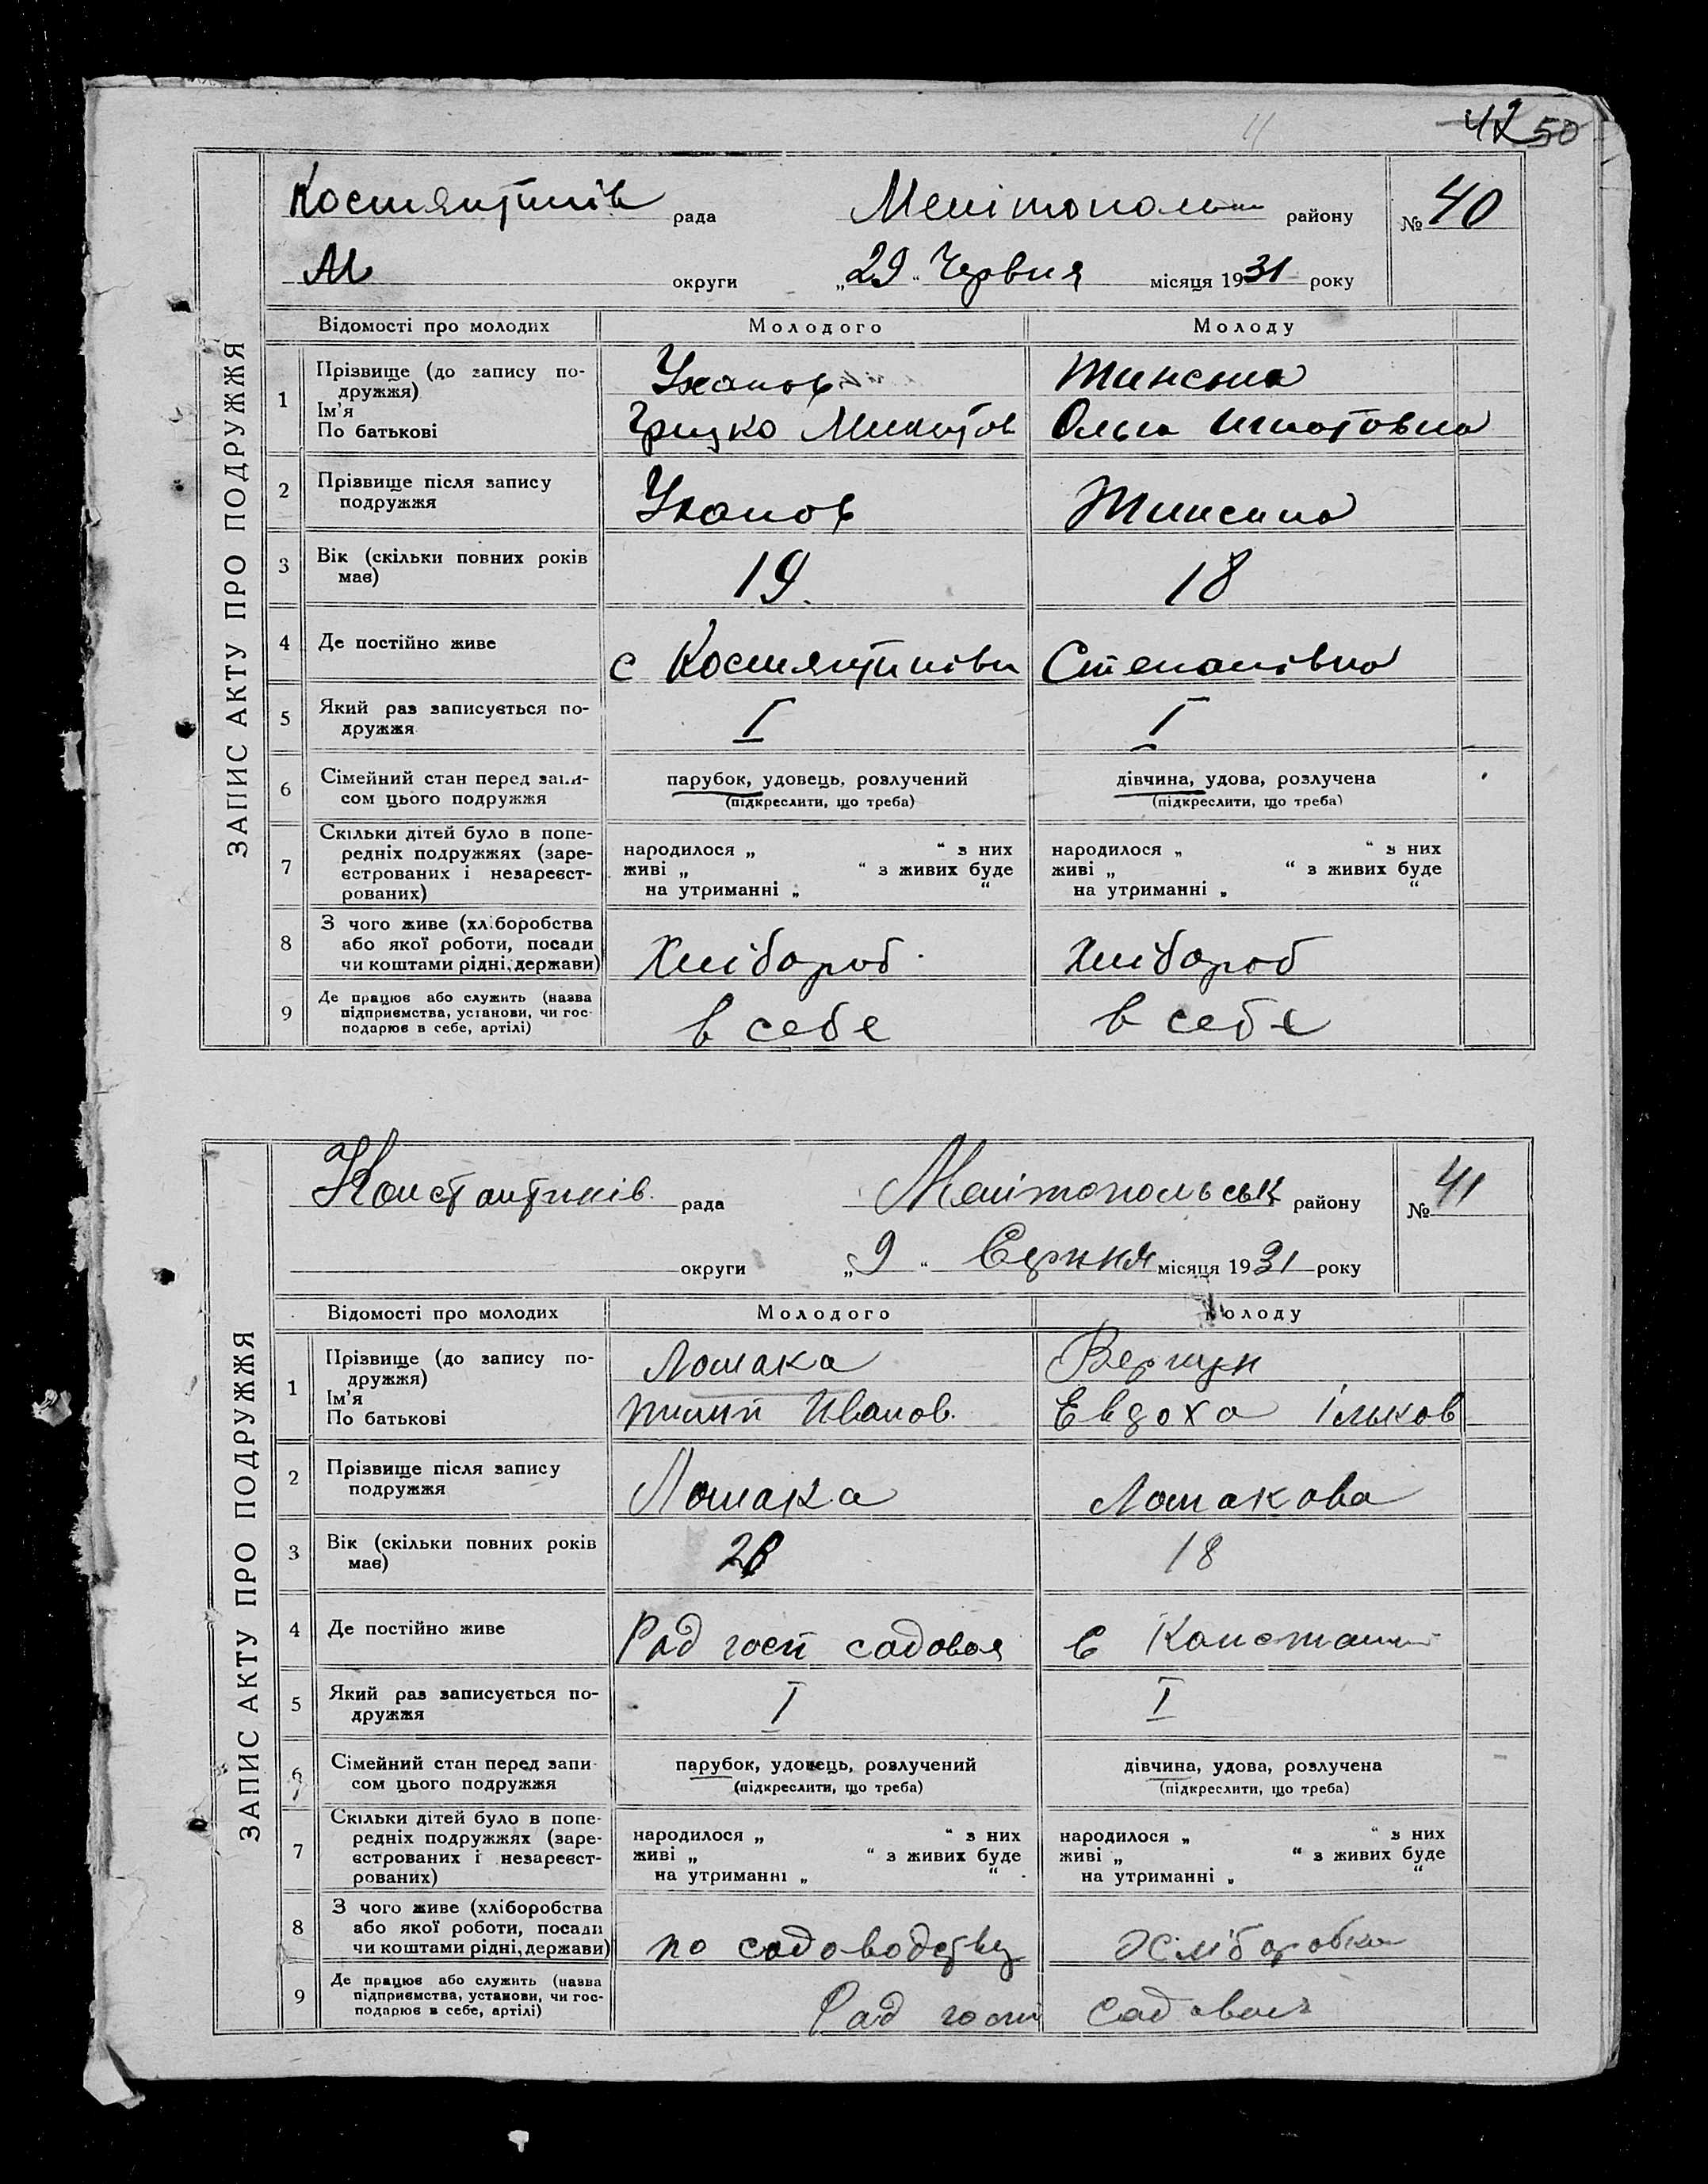 42 50
ЗАПИС АКТУ ПРО ПОДРУЖЖЯ
Костянтинів рада Мелітополь району № 40
М округи „29“ Червня місяця 1931 року
Відомості про молодих Молодого Молоду
1 Прізвище (до запису по-
дружжя)
Ім'я
По батькові
Уханов
Грицко Микитов
Ольга Игнатовна
2 Прізвище після запису
подружжя
Уханов
3 Вік (скільки повних років
має)
19. 18
4 Де постійно живе
с Костянтинівки Степанівка
5 Який раз записується по-
дружжя
I I
6 Сімейний стан перед запи-
сом цього подружжя
парубок, удовець, розлучений дівчина, удова, розлучена
(підкреслити, що треба) (підкреслити, що треба)
7 Скільки дітей було в попе-
редніх подружжях (заре-
єстрованих і незареєст-
рованих)
народилося „ “ з них народилося „ “ з них
живі „ “ з живих буде живі „ “ з живих буде
на утриманні „ “ на утриманні „ “
8 З чого живе (хліборобства
або якої роботи, посади
чи коштами рідні, держави)
Хлібороб Хлібороб
9 Де працює або служить (назва
підприємства, установи, чи гос-
подарює в себе, артілі)
в себе в себе
ЗАПИС АКТУ ПРО ПОДРУЖЖЯ
Константинів. рада Мелітопольськ району № 41
округи „9“ Серпня місяця 1931 року
Відомості про молодих Молодого Молоду
1 Прізвище (до запису по-
дружжя)
Ім'я
По батькові
Ломака Вергун
Иванов. Евдоха Ільков
2 Прізвище після запису
подружжя
Ломака Ломакова
3 Вік (скільки повних років
має)
18
4 Де постійно живе
Рад госп садовая с Констант
5 Який раз записується по-
дружжя
I I
6 Сімейний стан перед запи-
сом цього подружжя
парубок, удовець, розлучений дівчина, удова, розлучена
(підкреслити, що треба) (підкреслити, що треба)
7 Скільки дітей було в попе-
редніх подружжях (заре-
єстрованих і незареєст-
рованих)
народилося „ “ з них народилося „ “ з них
живі „ “ з живих буде живі „ “ з живих буде
на утриманні „ “ на утриманні „ “
8 З чого живе (хліборобства
або якої роботи, посади
чи коштами рідні, держави)
по садоводству Хліборобка
9 Де працює або служить (назва
підприємства, установи, чи гос-
подарює в себе, артілі)
Рад госп Садовая